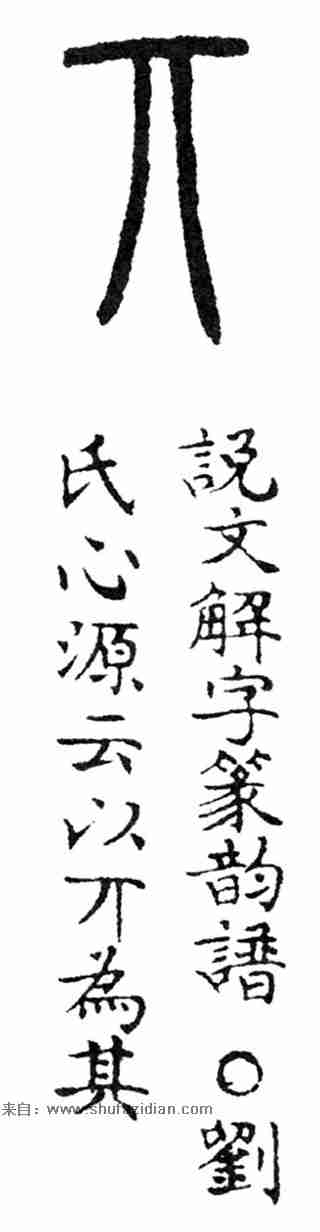 丌
說文解字篆韵譜○劉
氏心源云以丌為其
来自：www.shufazidian.com